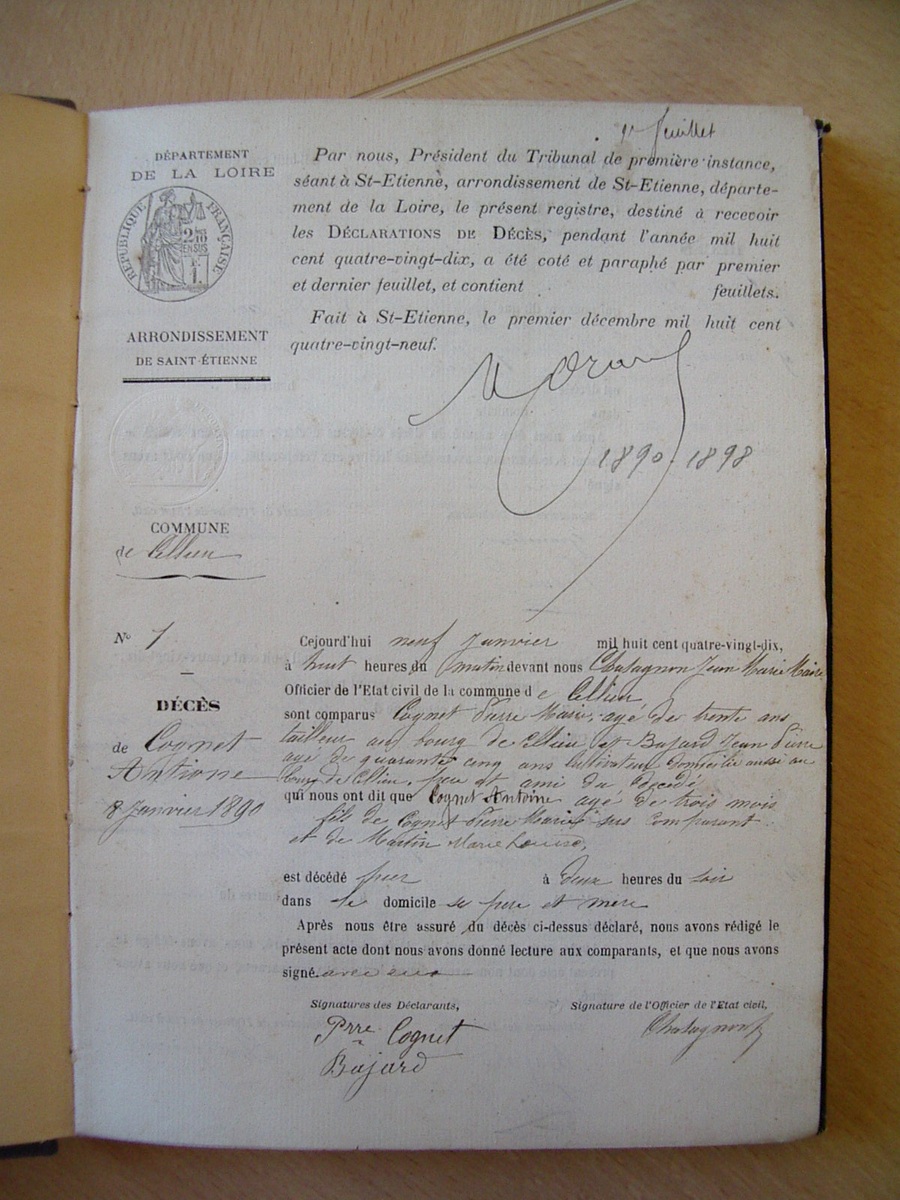 1er feuillet
DÉPARTEMENT
DE LA LOIRE
RÉPUBLIQUE FRANÇAISE
ARRONDISSEMENT
DE SAINT-ÉTIENNE
COMMUNE
de Cellieu
Par nous, Président du Tribunal de première instance,
séant à St-Etienne, arrondissement de St-Etienne, départe-
ment de la Loire, le présent registre, destiné à recevoir
les DÉCLARATIONS DE DÉCÈS, pendant l'année mil huit
cent quatre-vingt-dix, a été coté et paraphé par premier
et dernier feuillet, et contient feuillets.
Fait à St-Etienne, le premier décembre mil huit cent
quatre-vingt-neuf.
1890-1898
No 1
DÉCÈS
de Cognet
Antione
8 Janvier 1890
Cejourd'hui neuf Janvier mil huit cent quatre-vingt-dix,
à huit heures du matin devant nous Chatagnon Jean Marie Maire
Officier de l'Etat civil de la commune de Cellieu
sont comparus Cognet Pierre Marie, agé de trente ans
tailleur au bourg de Cellieu et Bajard Jean Pierre
agé de quarante cinq ans cultivateur domicilié aussi au
bourg de Cellieu, père et ami du décédé
qui nous ont dit que Cognet Antoine agé de trois mois
fils de Cognet Pierre Marie sus comparant
et de Martin Marie Louise,
est décédé hier à deux heures du soir
dans le domicile de père et mère
Après nous être assuré du décès ci-dessus déclaré, nous avons rédigé le
présent acte dont nous avons donné lecture aux comparants, et que nous avons
signé. avec eux
Signatures des Déclarants,
Prre Cognet
Bajard
Signature de l'Officier de l'Etat civil,
Chatagnon